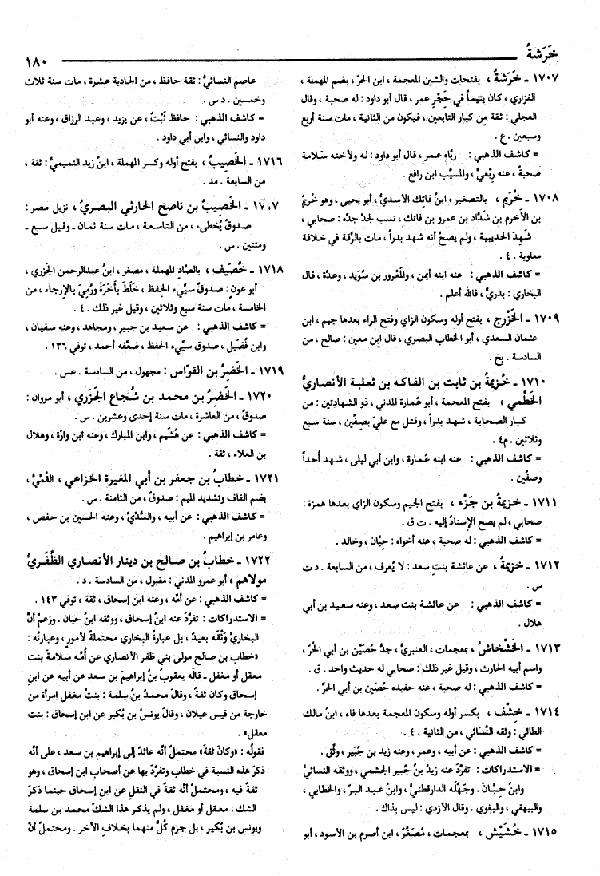 خَرَشةُ
١٨٠
١٧٠٧ ـ خَرَشةُ ، بفتحات والشين المعجمة ، ابن الحُرّ، بضم المهملة ،
الفزاري ، كان يتيماً في حَجْر عمر ، قال أبو داود : له صحبة ، وقال
العجلي : ثقة من كبار التابعين ، فيكون من الثانية ، مات سنة أربع
وسبعين . ع .
= كاشف الذهبي : ربّاه عمر ، قال أبو داود : له ولأخته سَلامة
صحبةٌ ، عنه رِبْعيٌّ ، والمسيَّب ابن رافع .
١٧٠٨ ـ خُرَيْم ، بالتصغير ، ابنُ فاتك الأسديُّ ، أبو يحيى . وهو خُرَيم
بن الأخرم بن شدَّاد بن عمرو بن فاتك ، نسب لجدِّ جدّه : صحابي ،
شهد الحديبية ، ولم يصحَّ أنه شهد بدراً ، مات بالرَّقَّة في خلافة
معاوية . ٤ .
= كاشف الذهبي : عنه ابنه أيمن ، والمَعْرور بن سُوَيد ، وعدة ، قال
البخاري : بدريٌّ ، فالله أعلم .
١٧٠٩ ـ الخَزْرج ، بفتح أوله وسكون الزاي وفتح الراء بعدها جيم ، ابن
عثمان السعدي ، أبو الخطاب البصري ، قال ابن معين : صالح ، من
السادسة . بخ .
١٧١٠ ـ خُزيمةُ بن ثابت بن الفاكه بن ثعلبة الأنصاريُّ
الخَطْميُّ ، بفتح المعجمة ، أبو عُمارة المدني ، ذو الشهادتين : من
كبار الصحابة ، شهد بدراً ، وقتل مع عليّ بصِفّين ، سنة سبع
وثلاثين . م٤ .
= كاشف الذهبي : عنه ابنه عُمارة ، وابن أبي ليلى ، شهد أحداً
وصفّين .
١٧١١ ـ خزيمةُ بن جَزْء ، بفتح الجيم وسكون الزاي بعدها همزة :
صحابي ، لم يصح الإسنادُ إليه . ت ق .
= كاشف الذهبي : له صحبة ، عنه أخواه : حِبّان ، وخالد .
١٧١٢ ـ خزيمةُ ، عن عائشة بنتِ سعد : لا يُعرف ، من السابعة . د ت
س .
= كاشف الذهبي : عن عائشة بنت سعد ، وعنه سعيد بن أبي
هلال .
١٧١٣ ـ الخَشْخاشُ ، بمعجمات ، العنبري ، جدُّ حُصَين بن أبي الحُرّ ،
واسم أبيه الحارث ، وقيل غير ذلك : صحابي له حديث واحد . ق .
= كاشف الذهبي : له صحبة ، عنه حفيده حُصَين بن أبي الحُرّ .
١٧١٤ ـ خِشْف ، بكسر أوله وسكون المعجمة بعدها فاء ، ابنُ مالك
الطائي : وثقه النَّسائي ، من الثانية . ٤ .
= كاشف الذهبي : عن أبيه ، وعمر ، وعنه زيد بن جُبَير ، وثِّق .
= الاستدراكات : تفرَّد عنه زيدُ بنُ جُبير الجشمي ، ووثقه النسائي
وابنُ حِبَّان . وجهَّله الدارقطنيُّ ، وابنُ عبد البر ، والخطابي ،
والبيهقي ، والبغوي . وقال الأزدي : ليس بذاك .
١٧١٥ ـ خُشَيْش ، بمعجمات ، مُصَغَّرٌ ، ابن أصرم بن الأسود ، أبو
عاصم النسائيُّ : ثقة حافظ ، من الحادية عشرة ، مات سنة ثلاث
وخمسين . د س .
= كاشف الذهبي : حافظ ثَبْت ، عن يزيد ، وعبد الرزاق ، وعنه أبو
داود والنسائي ، وابن أبي داود .
١٧١٦ ـ الخَصِيبُ ، بفتح أوله وكسر المهملة ، ابنُ زيد التميميُّ : ثقة ،
من السابعة . مد .
١٧٠٧ ـ الخَصِيبُ بن ناصح الحارثي البصريُّ ، نزيل مصر :
صدوقٌ يُخطىء ، من التاسعة ، مات سنة ثمان ـ وقيل سبع ـ
ومئتين . س .
١٧١٨ ـ خُصَيْف ، بالصّادِ المهملة ، مصغر ، ابنُ عبدالرحمن الجَزَري ،
أبو عون : صدوقٌ سيِّىء الحفظ ، خَلَّطَ بأَخَرَة ورُمِيَ بالإرجاء ، من
الخامسة ، مات سنة سبع وثلاثين ، وقيل غير ذلك . ٤ .
= كاشف الذهبي : عن سعيد بن جبير ، ومجاهد ، وعنه سفيان ،
وابن فُضَيل ، صدوق سيِّىء الحفظ ، ضعَّفه أحمد ، توفي ١٣٦ .
١٧١٩ ـ الخَضِرُ بن القوَّاس : مجهول ، من السادسة . عس .
١٧٢٠ ـ الخَضِرُ بن محمد بن شُجاع الجَزَري ، أبو مروان :
صدوقٌ ، من العاشرة ، مات سنة إحدى وعشرين . س .
= كاشف الذهبي : عن هُشَيم ، وابن المبارك ، وعنه ابن وارة ، وهلال
بن العلاء ، ثقة .
١٧٢١ ـ خطابُ بن جعفر بن أبي المغيرة الخزاعي ، القُمِّيُّ ،
بضم القاف وتشديد الميم : صدوقٌ ، من الثامنة . س .
= كاشف الذهبي : عن أبيه ، والسُّدِّيّ ، وعنه الحسين بن حفص ،
وعامر بن إبراهيم .
١٧٢٢ ـ خطابُ بن صالح بن دينار الأنصاري الظَّفَريُّ
مولاهم ، أبو عمرو المدني : مقبول ، من السادسة . د .
= كاشف الذهبي : عن أمّه ، وعنه ابن إسحاق ، ثقة ، توفي ١٤٣ .
= الاستدراكات : تفرَّدَ عنه ابنُ إسحاق ، ووثقه ابنُ حبان . وزعمُ أنَّ
البخاريَّ وَثَّقَه بعيدٌ ، بل عبارةُ البخاري محتملةٌ لأمورٍ ، وعبارتُه :
«خطاب بن صالح مولى بني ظفر الأنصاري عن أمه سلامة بنت
معقل أو مغفل ـ قاله يعقوب بنُ إبراهيم بن سعد عن أبيه عن ابن
إسحاق وكان ثقة» ، وقال محمد بن سلمة : بنتُ مغفل امرأة من
خارجة من قيس عيلان ، وقال يونس بن بُكير عن ابن إسحاق : بنت
معقل» .
فقولُه : «وكان ثقةً» محتملٌ أنه عائدٌ إلى إبراهيم بن سعد ، على أنَّه
ذكرَ هذه النسبة في خطاب وتفرَّد بها عن أصحاب ابن إسحاق ، وهو
ثقة فيه ، ومحتملٌ أنَّه ثقةٌ في النقل عن ابن إسحاق حينما ذكر
الشك : معقل أو مغفل ، ولم يذكر هذا الشكَّ محمد بن سلمة
ويونس بن بُكير ، بل جزم كُلٌّ منهما بخلافِ الآخر . ومحتملٌ أنَّ